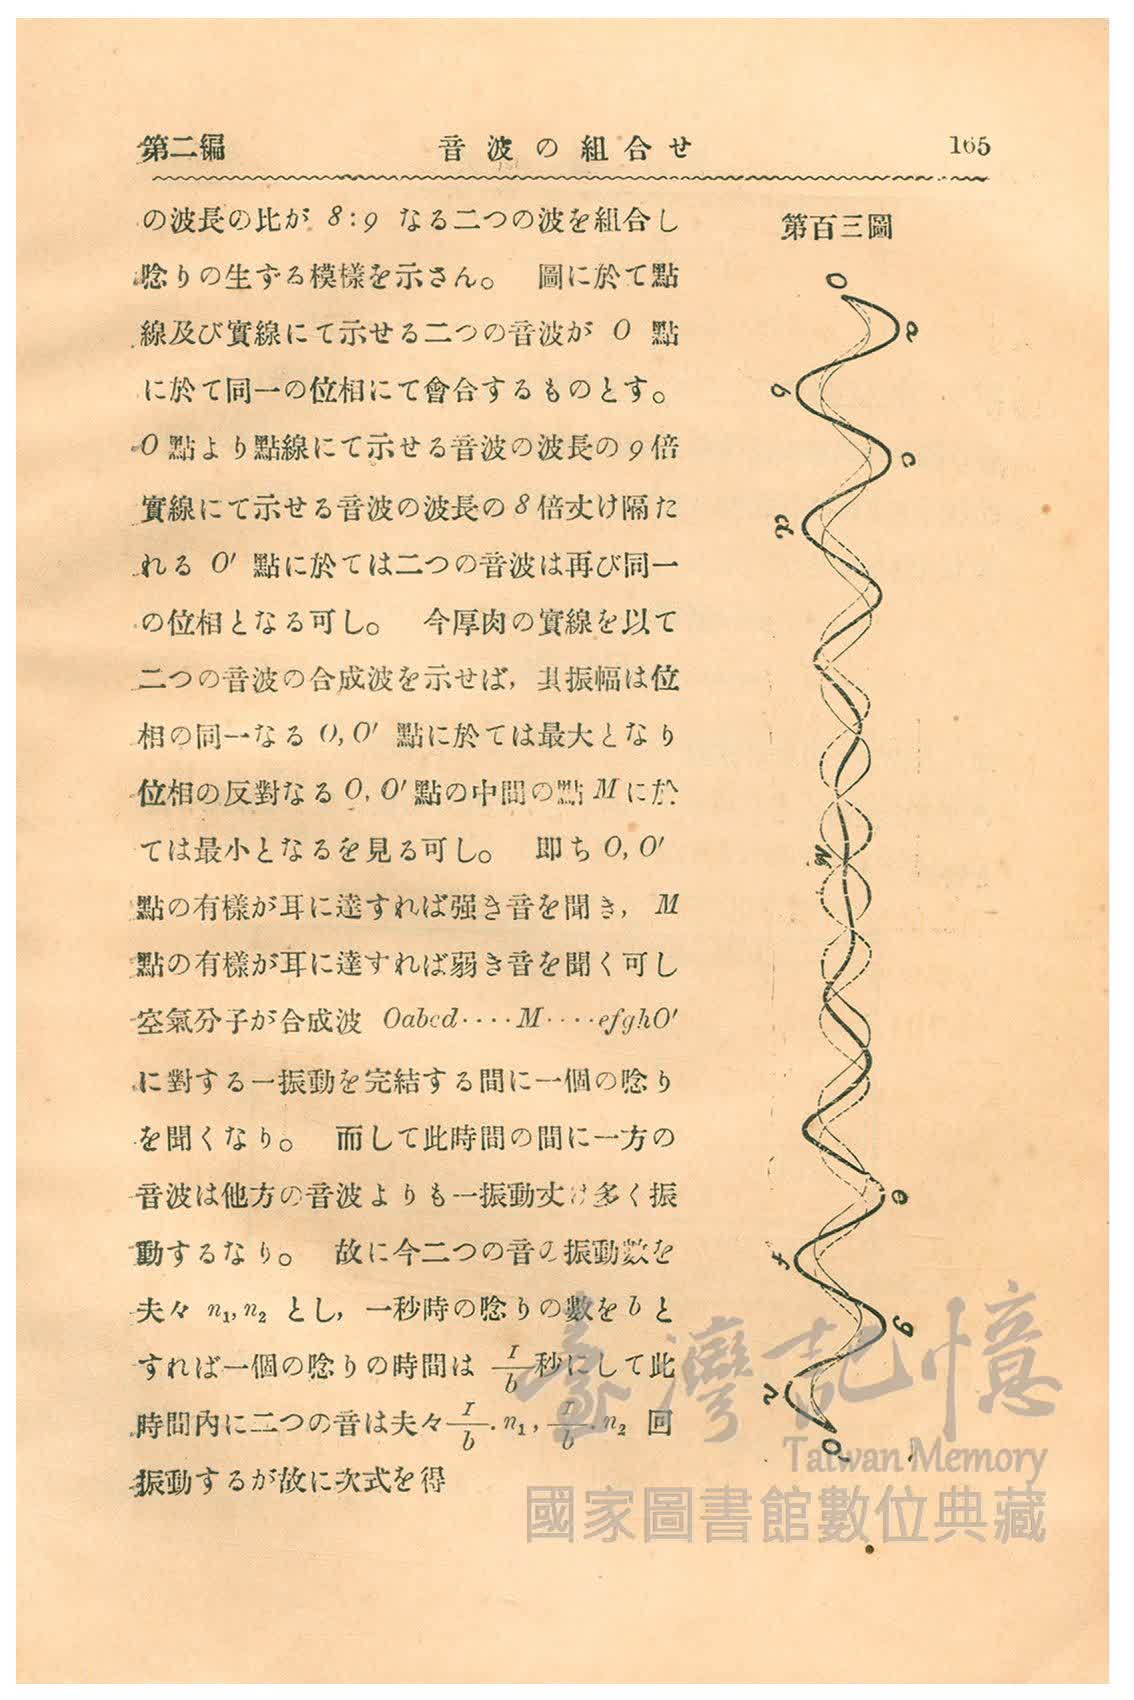 第二編 音波の組合せ 165
の波長の比が 8:9 なる二つの波を組合し
唸りの生ずる模樣を示さん。 圖に於て點
線及び實線にて示せる二つの音波が O 點
に於て同一の位相にて會合するものとす。
O 點より點線にて示せる音波の波長の 9 倍
實線にて示せる音波の波長の 8 倍丈け隔た
れる O′ 點に於ては二つの音波は再び同一
の位相となる可し。 今厚肉の實線を以て
二つの音波の合成波を示せば, 其振幅は位
相の同一なる O, O′ 點に於ては最大となり
位相の反對なる O, O′ 點の中間の點 M に於
ては最小となるを見る可し。 卽ち O, O′
點の有樣が耳に達すれば强き音を聞き, M
點の有樣が耳に達すれば弱き音を聞く可し
空氣分子が合成波 Oabcd····M····efghO′
に對する一振動を完結する間に一個の唸り
を聞くなり。 而して此時間の間に一方の
音波は他方の音波よりも一振動丈け多く振
動するなり。 故に今二つの音の振動數を
夫々 n₁, n₂ とし, 一秒時の唸りの數を b と
すれば一個の唸りの時間は 1/b 秒にして此
時間內に二つの音は夫々 1/b . n₁, 1/b . n₂ 回
振動するが故に次式を得
第百三圖
O
a
b
c
d
M
e
f
g
h
O′
臺灣記憶
Taiwan Memory
國家圖書館數位典藏